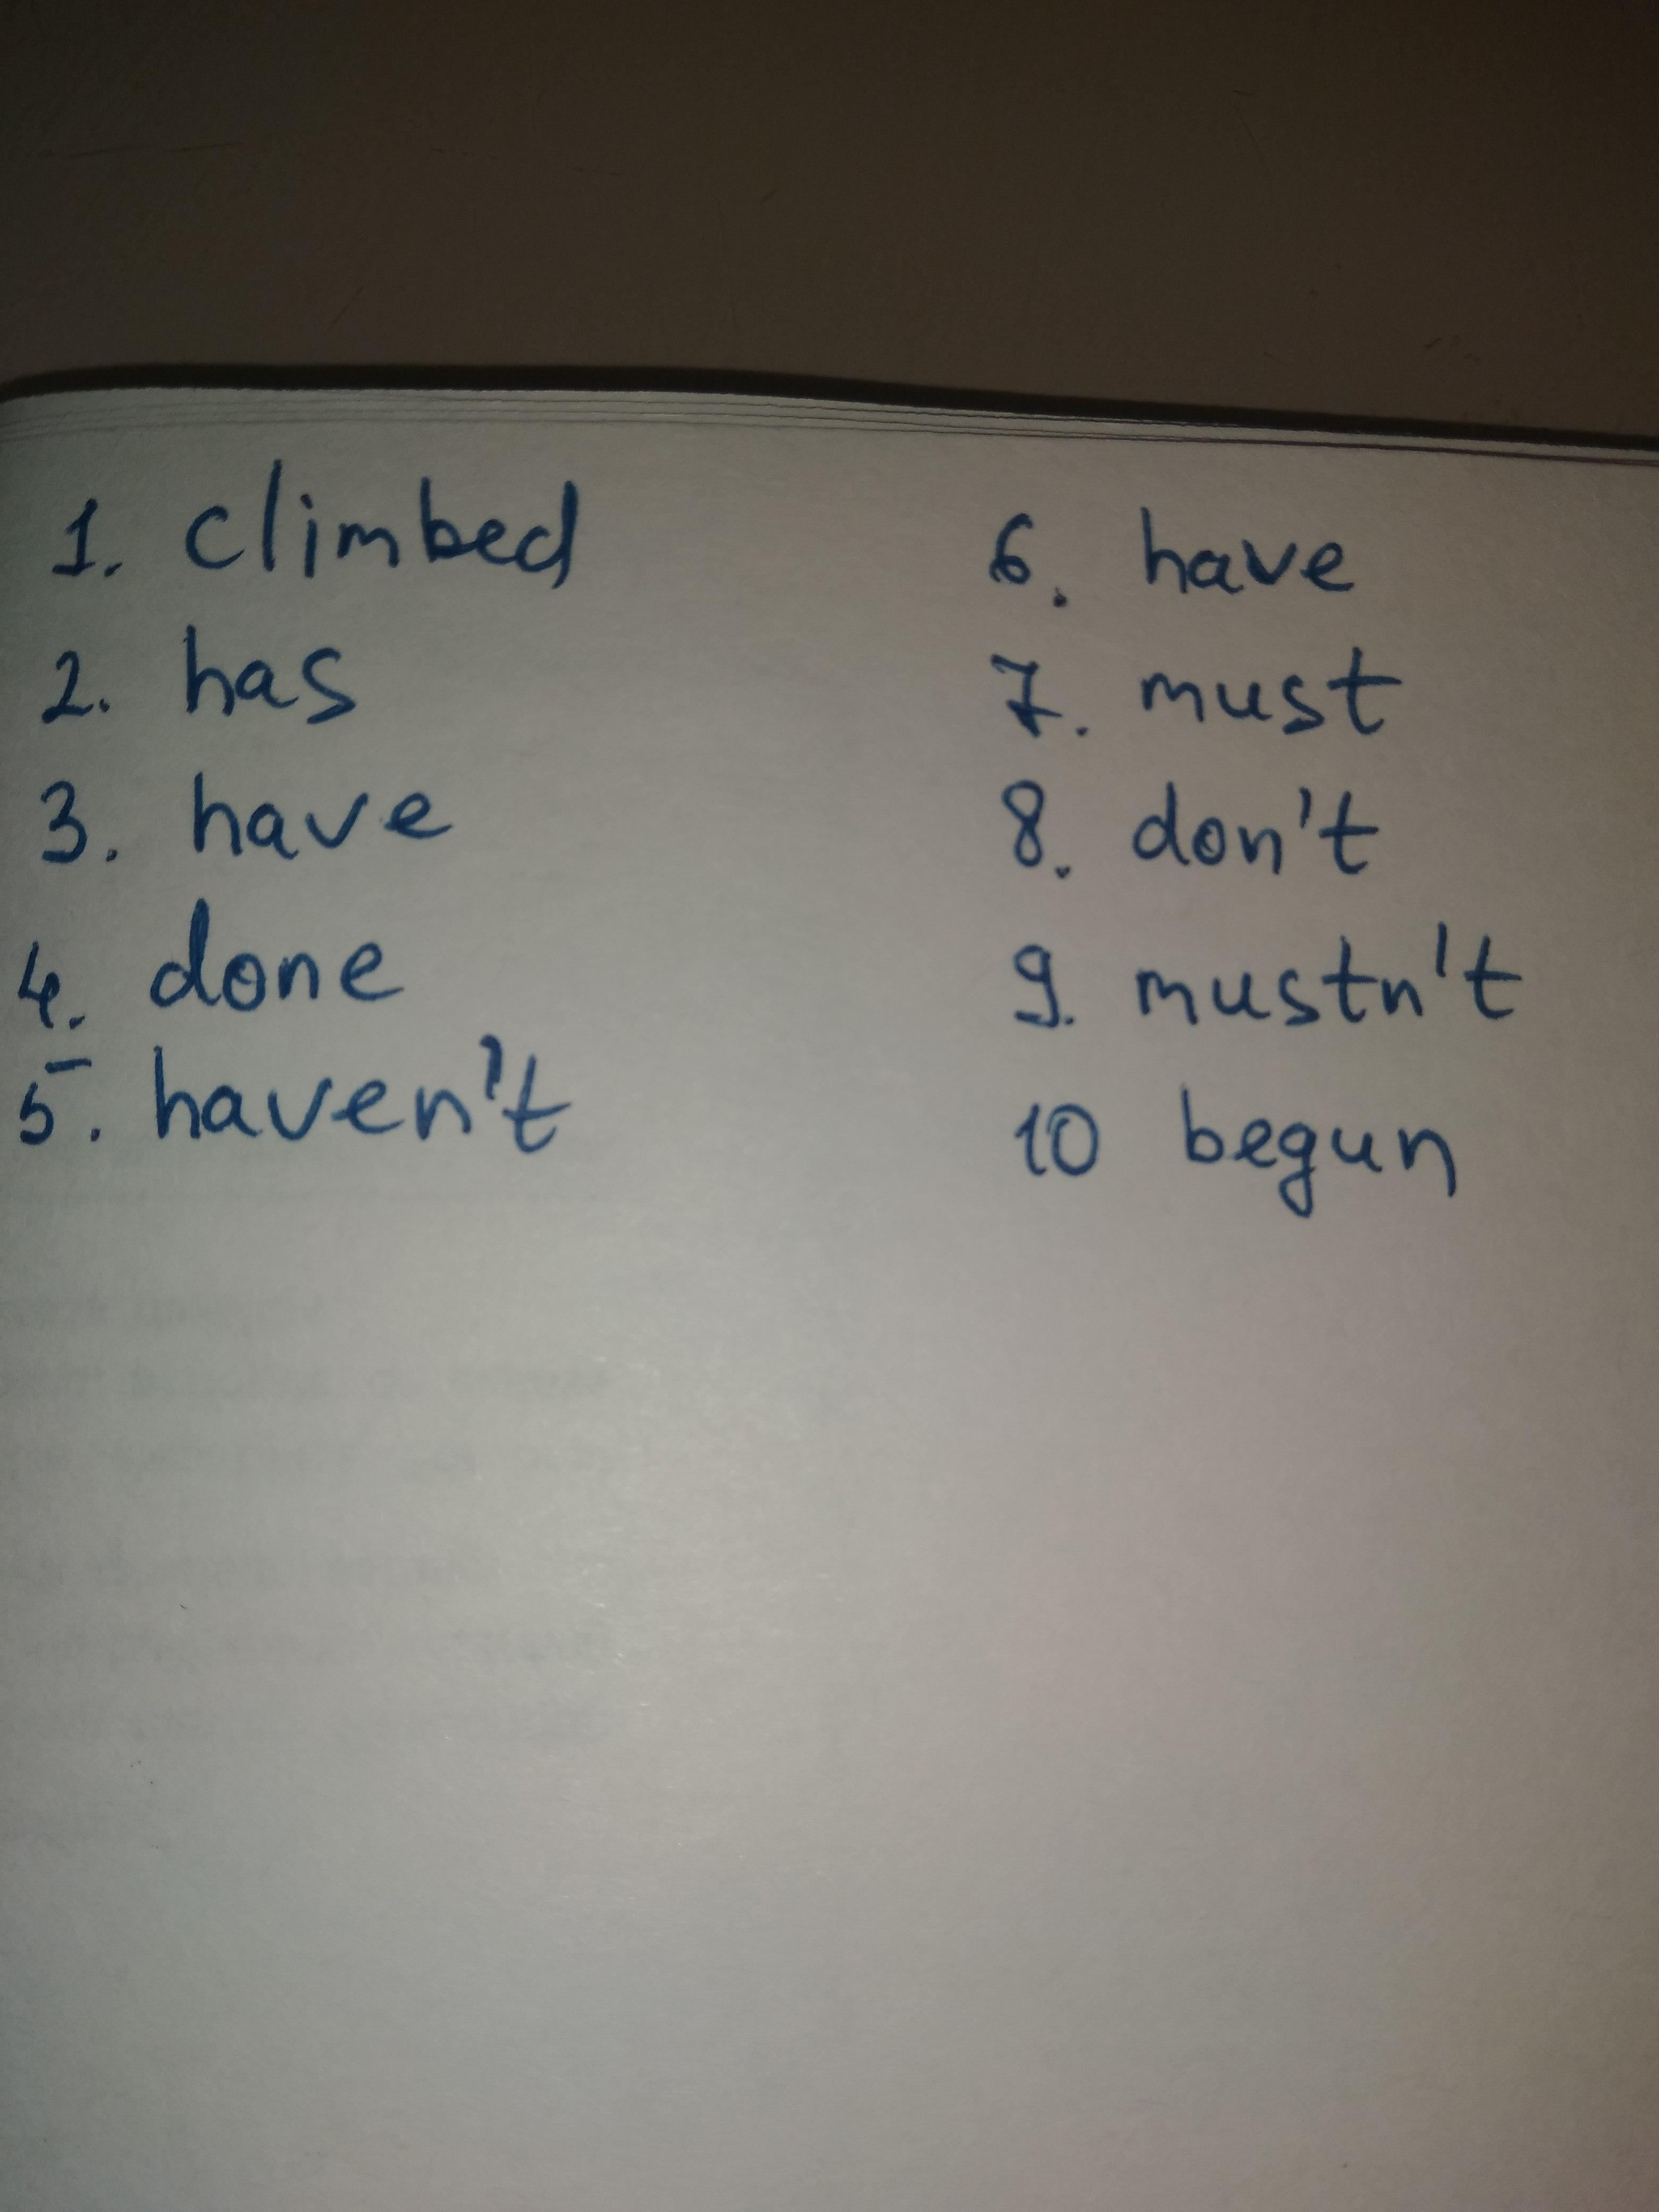 1. climbed
2. has
3. have
4. done
5. haven't
6. have
7. must
8. don't
9. mustn't
10 begun